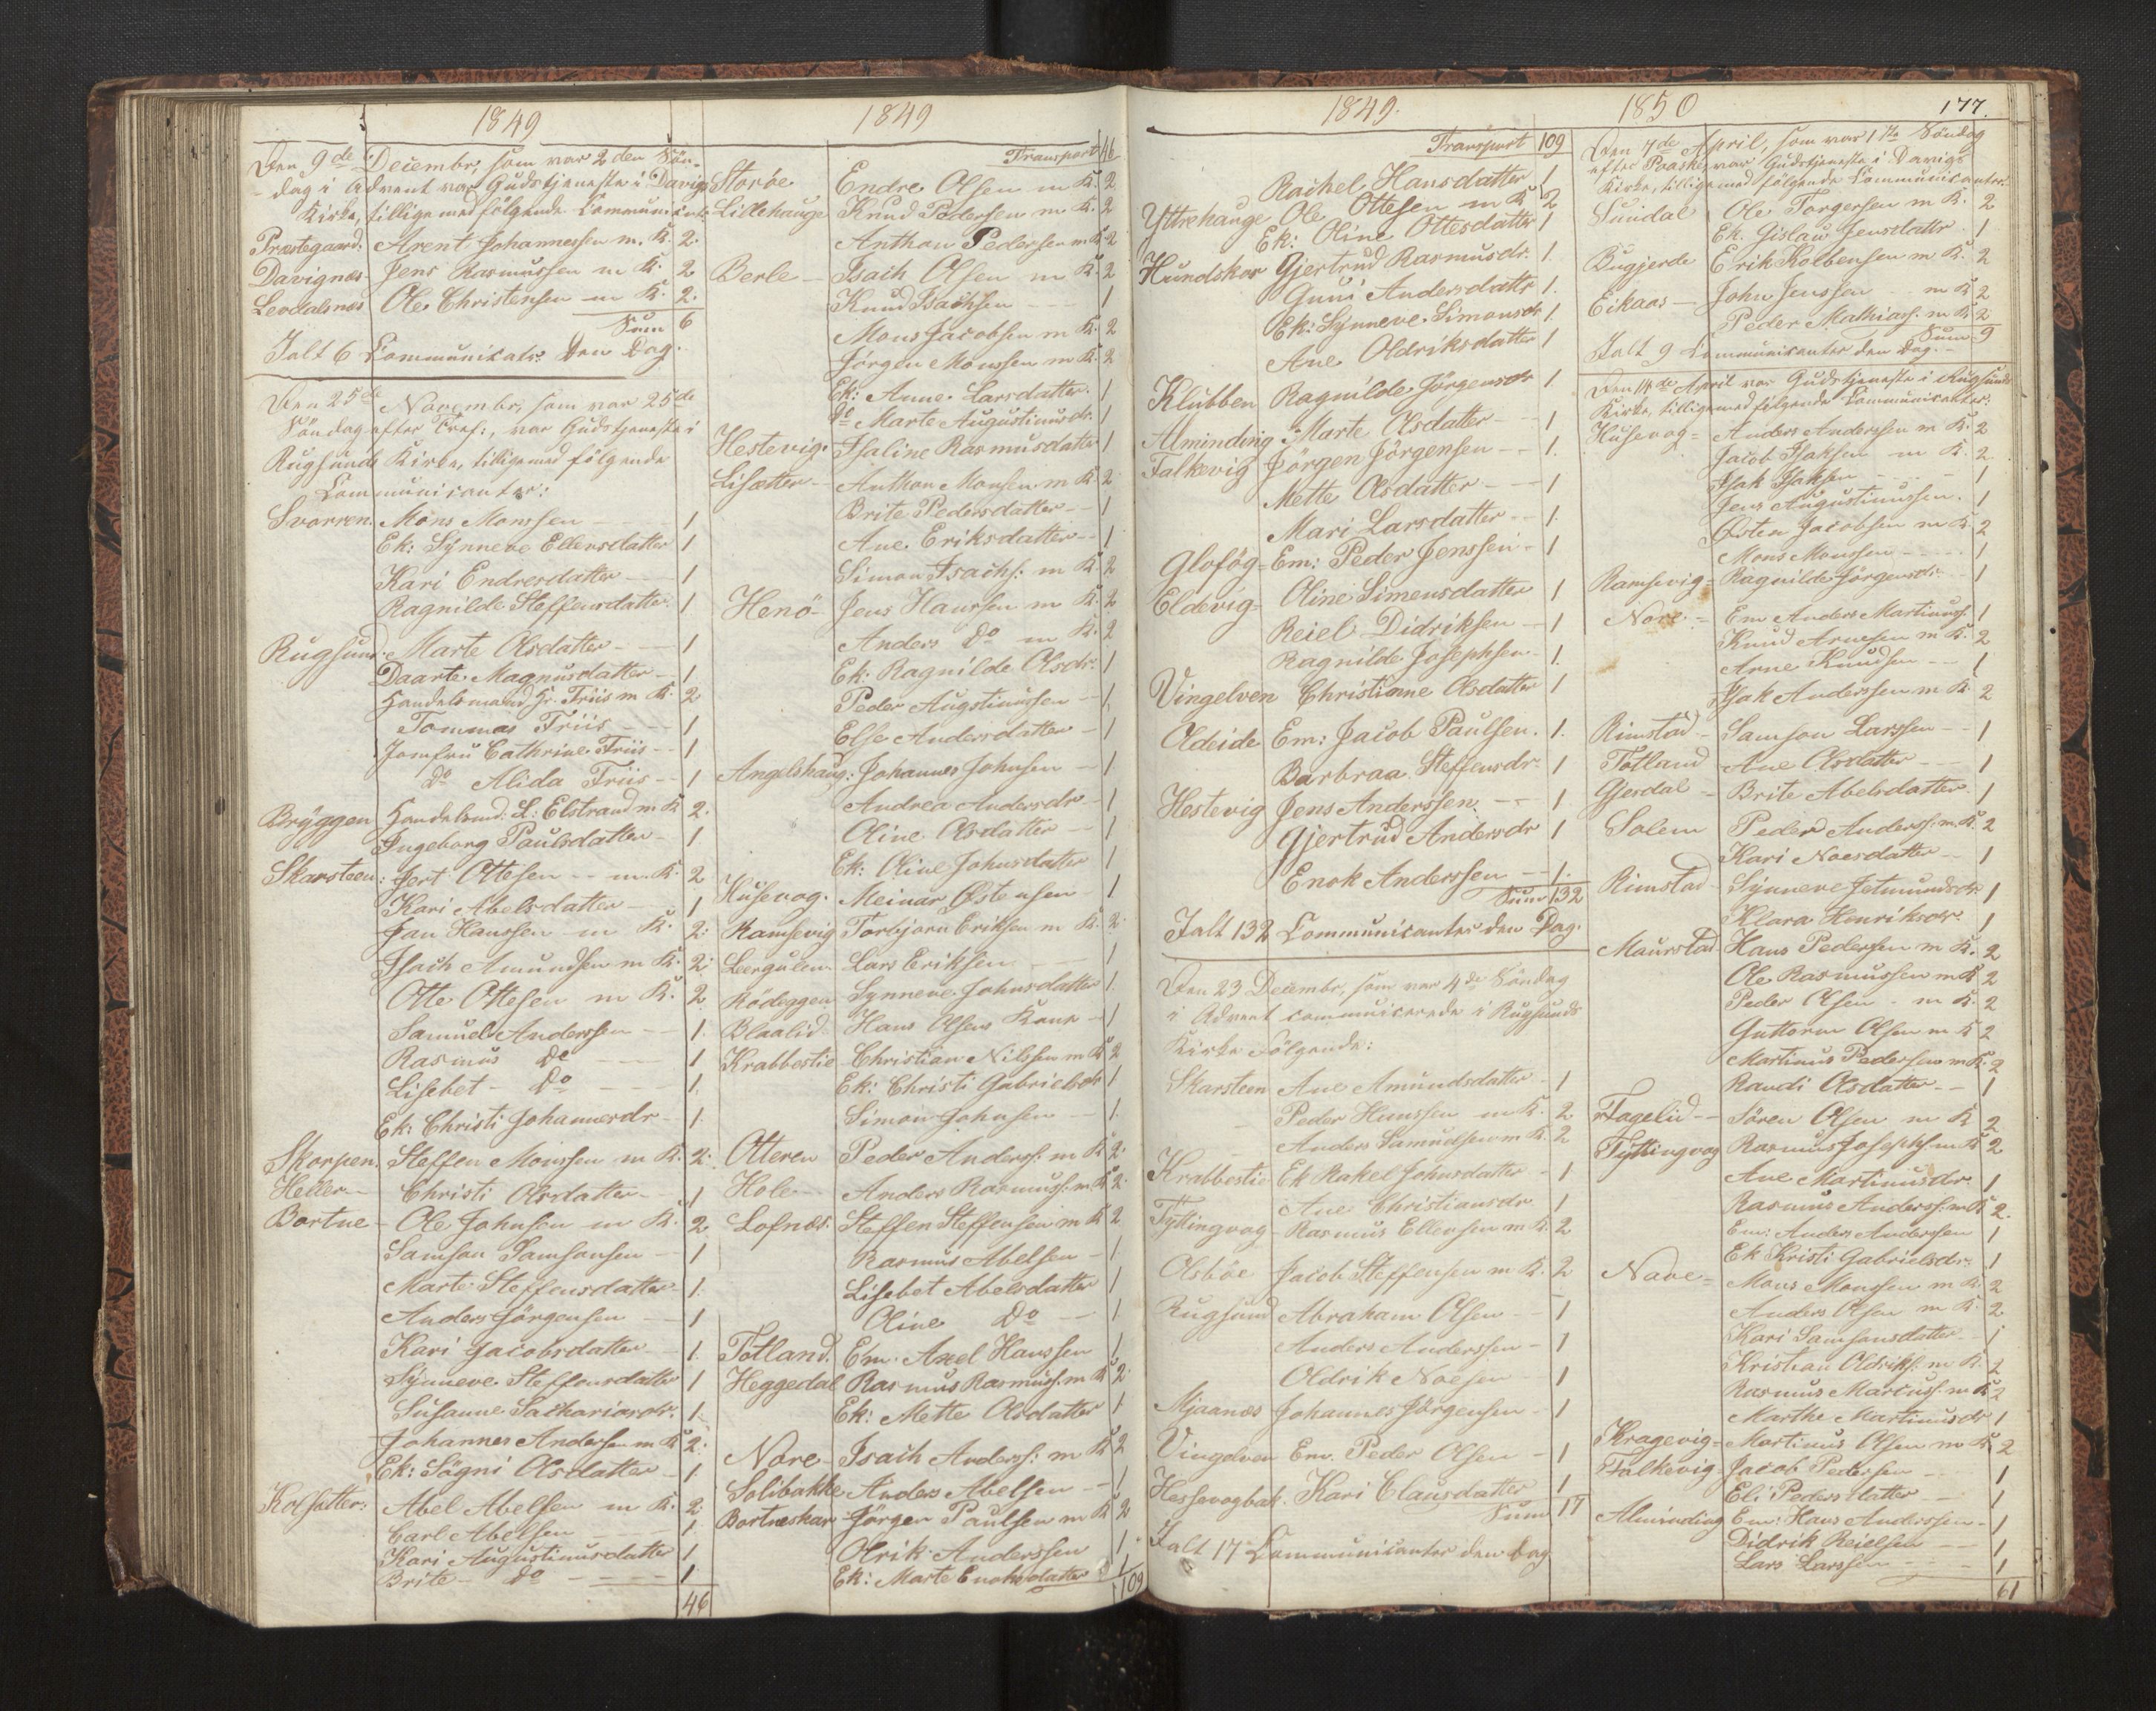 1849
Den 9de Decembr, som var 2den Søn-
dag i Advent var Gudstjeneste i Davigs
Kirke, tilligemed følgende Communicant:
Præstegaard. Arent Johannessen m. K. 2.
Davignæs Jens Rasmussen m K. 2
Levdalsnæs Ole Christensen m K. 2.
Sum 6
Jalt 6 Communicatr. Den Dag.
Den 25de Novembr, som var 25de
Søndag efter Tref:, var Gudstjeneste i
Rugsunds Kirke, tilligemed følgende
Communicanter:
Svorren. Mons Monssen 1
Ek: Synneve Ellensdatter 1
Kari Endresdatter 1
Ragnilde Steffensdatter 1
Rugsund. Marte Olsdatter 1
Daarte Magnusdatter 1
Handelsmand Hr. Friis m K. 2
Tommas Friis 1
Jomfru Cathrine Friis 1
do Alida Friis 1
Bryggen Handelsmd: L: Elstrand m K 2.
Ingeborg Paulsdatter 1
Skarsteen: Jert Ottesen m. K. 2
Kari Abelsdatter 1
Jan Hanssen m K. 2.
Isach Amundsen m K. 2.
Otte Ottesen m K. 2.
Samuel Anderssen 1.
Rasmus Do 1
Lisebet Do 1.
Ek: Christi Johannesdr 1.
Skorpen. Steffen Monssen m K. 2.
Heller Christi Olsdatter 1
Bortne Ole Johnsen m K. 2.
Samson Samsonsen 1
Marte Steffensdatter 1.
Anders Jørgensen 1
Kari Jacobsdatter 1.
Synneve Steffensdatter 1
Susanne Sachariasdr. 1.
Johannes Andersen m K 2.
Ek: Søgni Olsdatter 1.
Kolsætter: Abel Abelsen m K. 2.
Carl Abelsen 1.
Kari Augustinusdatter 1
Brite do 1
46
1849
Transport 46
Storøe Endre Olsen m K. 2
Lillehauge Knud Pedersen m K. 2
Anthon Pedersen m K 2
Berle Isach Olsen m K. 2
Knud Isachsen 1
Mons Jacobsen m K. 2
Jørgen Monssen m K. 2
Ek: Anne Larsdatter. 1
do Marte Augustinusdr. 1
Hestevig. Isaline Rasmusdatter 1
Lisætter Anthon Monsen m K. 2
Brite Pedersdatter 1
Ane Eriksdatter 1
Simon Isachs: m K 2
Henø Jens Hanssen m K. 2
Anders do m K. 2
Ek: Ragnilde Olsdr. 1
Peder Augstinussen 1.
Else Andersdatter 1
Angelshaug: Johannes Johnsen 1
Andrea Andersdr 1
Oline Olsdatter 1
Ek: Oline Johnsdatter 1
Husevog. Meinar Østensen 1
Ramsevig Torbjørn Eriksen m K. 2
Leergulen Lars Eriksen 1
Rødeggen Synneve Johnsdatter 1.
Blaalid Hans Olsens Kone 1
Krabbestie Christian Nilssen m K 2
Ek: Christi Gabrielsdr 1
Simon Johnsen 1.
Otteren Peder Anderss: m K 2.
Hole Anders Rasmuss: m K 2.
Lofnæs. Steffen Steffensen m K 2
Rasmus Abelsen 1
Lisebet Abelsdatter 1
Oline Do 1
Totland. Em: Axel Hanssen 1
Heggedal Rasmus Rasmuss: m K 2.
Ek: Mette Olsdatter 1
Nore Isach Anderss: m K 2
Solibakke Anders Abelsen 1
Bortneskar Jørgen Paulsen m K 2
Olrik Anderssen 1
Ek: Marte Enoksdatter 1
109
1849.
Transport 109
Rachel Hansdatter 1
Yttrehauge Ole Ottesen m K 2
Ek: Oline Ottesdattr 1
Hundskor Gjertrud Rasmusdr. 1.
Guni Andersdattr 1.
Ek: Synneve Simonsdr 1.
Ane Oldriksdatter 1
Klubben Ragnilde Jørgensdr 1.
Alminding Marte Olsdatter 1
Falkevig Jørgen Jørgensen 1.
Mette Olsdatter 1
Mari Larsdatter 1.
Gloføg Em: Peder Jenssen 1
Eldevig Oline Simensdatter 1
Reiel Didriksen 1
Ragnilde Josephsen 1.
Vingelven Christianne Olsdatter 1
Oldeide Em: Jacob Paulsen. 1.
Barbraa Steffensdr. 1
Hestevig Jens Anderssen. 1
Gjertrud Andersdr 1
Enok Anderssen 1.
Sum 132
Jalt 132 Communicanter den Dag.
Den 23 Decembr, som var 4de Søndag
i Advent communicerede i Rugsunds
Kirke Følgende:
Skarsteen Ane Amundsdatter 1
Peder Hanssen m K. 2
Anders Samuelsen m K. 2
Krabbestie Ek Rakel Johnsdatter 1
Ane Christiansdr 1
Tyttingvog Rasmus Ellensen m K. 2
Olsbøe Jacob Steffensen m K. 2
Rugsund Abraham Olsen 1
Anders Anderssen 1
Oldrik Noesen 1
Mjaanæs Johannes Jørgensen 1
Vingelven Em. Peder Olsen 1
Hessevogbak. Kari Clausdatter 1
Sum 17
Jalt 17 Communicanter den Dag
1850
177.
Den 7de April, som var 1ste Søndag
efter Paaske, var Gudstjeneste i Davigs
Kirke, tilligemed følgende Communicanter.
Sundal Ole Torgersen m K. 2
Ek. Gislau Jensdattr 1
Bugjerde Erik Kolbensen m K. 2
Eikaas John Jenssen m K 2
Peder Mathiass. m K 2
Sum 9
Jalt 9 Communicanter den Dag.
Den 14de April var Gudstjeneste i Rugsunds
Kirke, tilligemed følgende Communicanter:
Husevog Anders Anderssen m K. 2
Jacob Isaksen m K. 2
Isak Isaksen 1
Jens Augustinussen. 1
Østen Jacobsen m K. 2
Mons Monssen 1
Ramsevig Ragnilde Jørgensdr. 1
Nore Em Anders Martinuss. 1
Knud Arnesen m K. 2
Arne Knudsen 1
Isak Anderssen m K. 2
Rimstad Samson Larssen 1
Totland Ane Olsdatter 1
Gjesdal Brite Abelsdatter 1
Solem Peder Anderss. m. K. 2
Kari Noesdatter 1
Rimstad Synneve Jetmundsdr 1
Klara Henriksdr. 1
Maurstad Hans Pedersen m K. 2
Ole Rasmussen m K 2
Peder Olsen m K. 2
Guttorm Olsen m K 2
Martinus Pedersen m K. 2
Randi Olsdatter 1
Fagelid Søren Olsen m K 2
Tyttingvog Rasmus Josephs. m K 2
Ane Martinusdr. 1
Rasmus Anderss. m K 2.
Em: Anders Anderssen 1
Ek Kristi Gabrielsdr. 1
Nave Mons Monssen m K 2
Anders Olsen m K. 2
Kari Samsonsdatter 1
Kristian Oldriks. m K. 2
Rasmus Marcuss. m K 2
Marthe Martinusdr 1
Kragevig Martinus Olsen m K 2
Falkevig Jacob Pedersen 1
Eli Pedersdatter 1
Alminding Em: Hans Anderssen 1
Didrik Reielsen 1
Lars Larssen 1
61